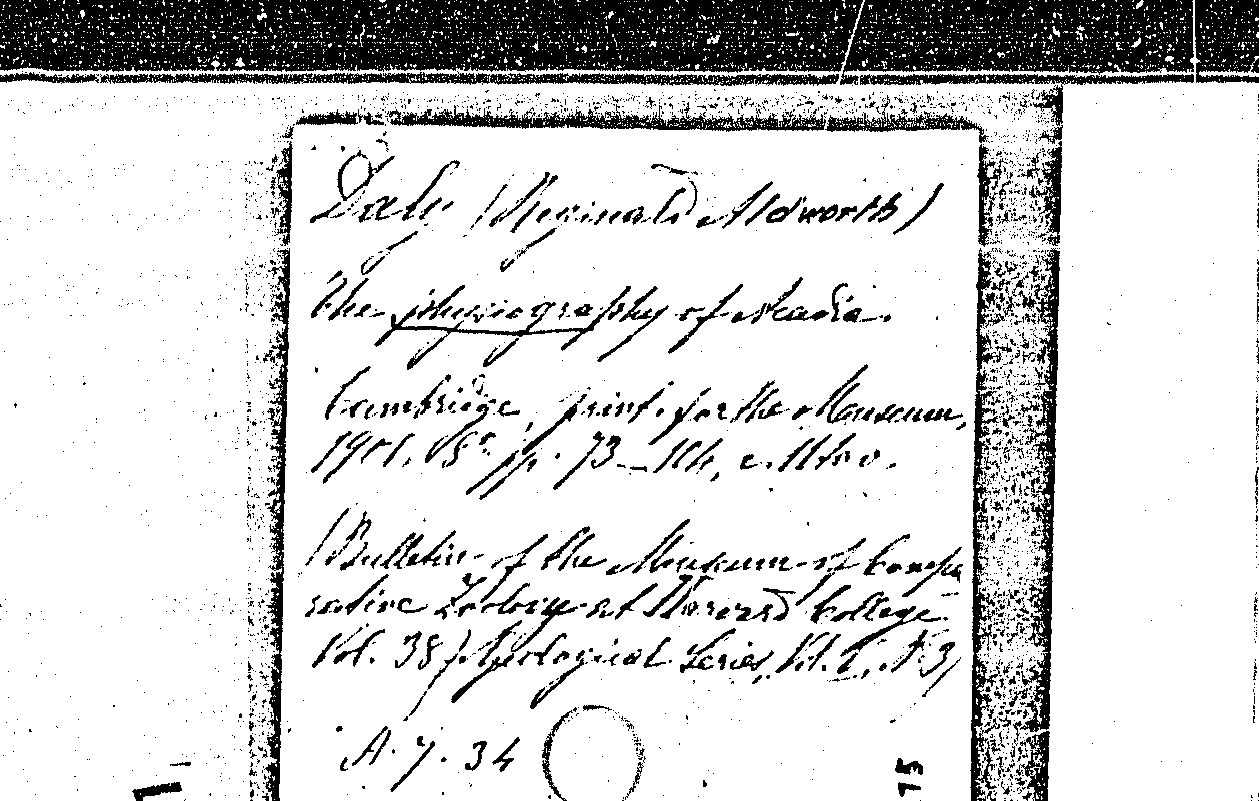 Daly (Reginald Aldworth)
The physiography of Acadia.
Cambridge, print. for the Museum,
1901. 8° pp. 73_104, c. 11 tav.
(Bulletin of the Museum of Compa
rative Zoology at Harvard College
Vol. 38, Geological Series, Vol. 5, N. 3)
A. 7. 34
15